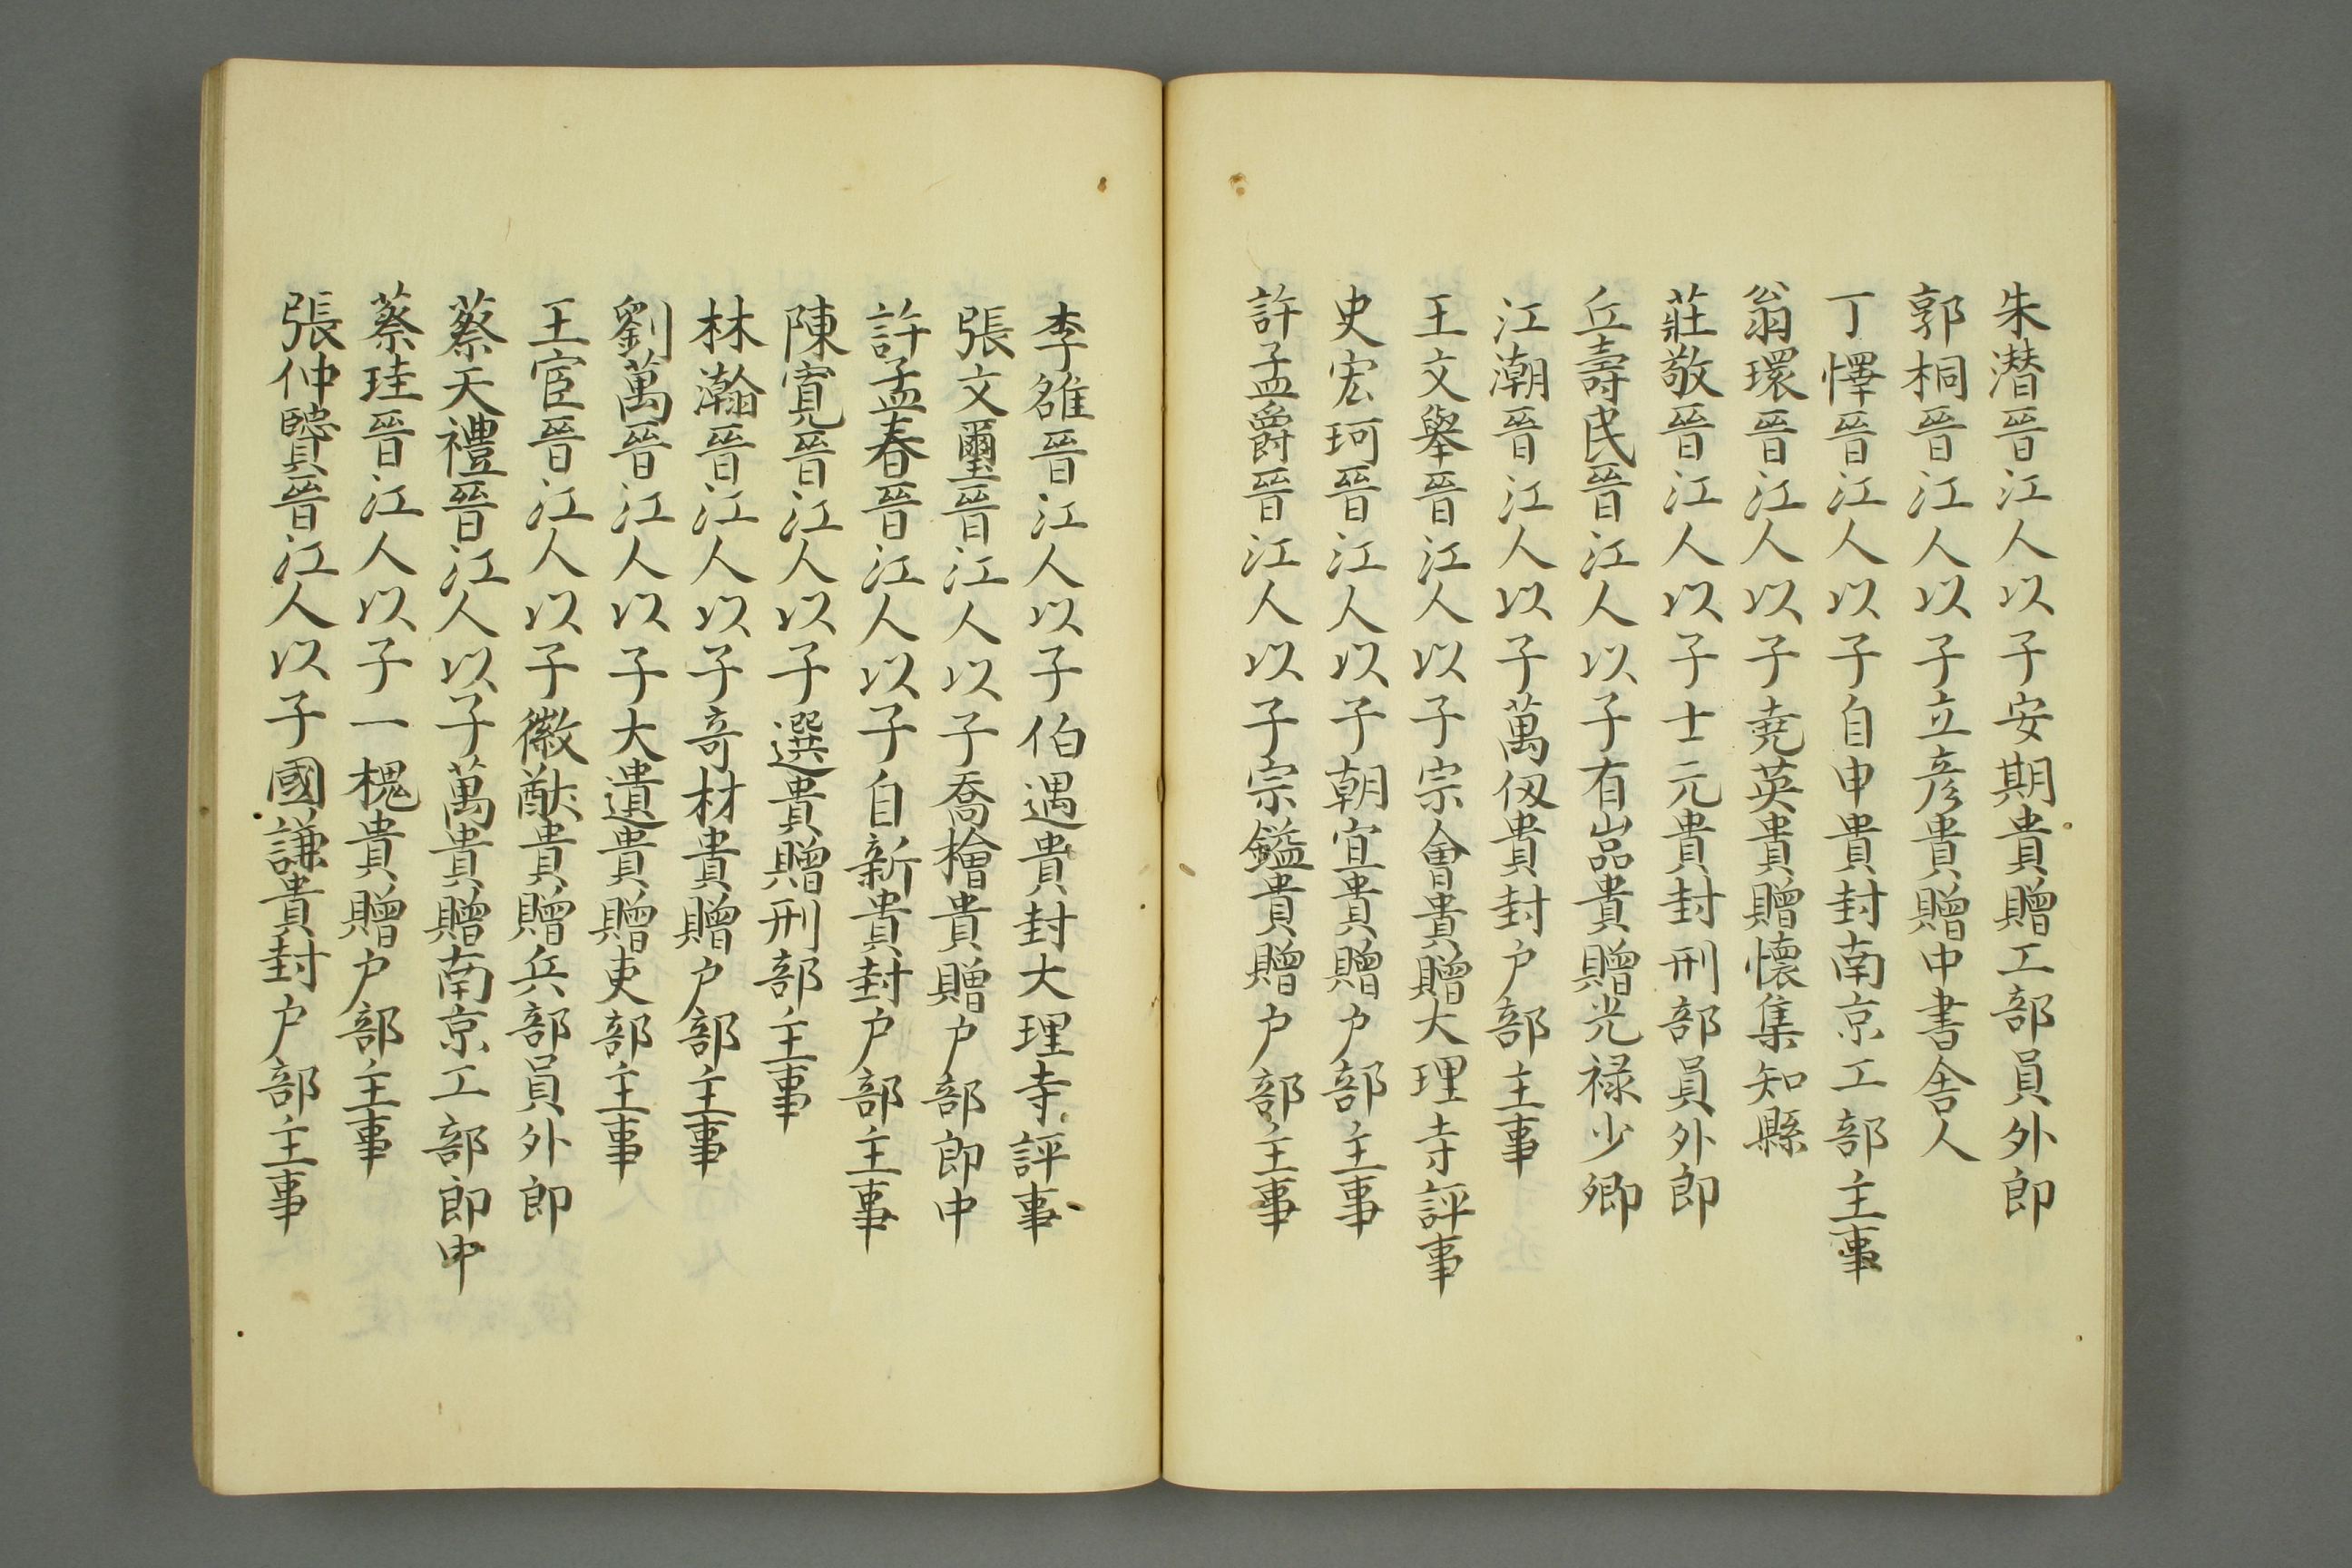 朱潛晉江人以子安期貴贈工部員外郎
郭桐晉江人以子立彦貴贈中書舍人
丁懌晉江人以子自申貴封南京工部主事
翁環晉江人以子堯英貴贈懷集知縣
莊敬晉江人以子士元貴封刑部員外郎
丘壽民晉江人以子有嵓貴贈光禄少卿
江潮晉江人以子萬仭貴封户部主事
王文舉晉江人以子宗會貴贈大理寺評事
史宏珂晉江人以子朝宜貴贈户部主事
許孟爵晉江人以子宗鎰貴贈户部主事
李雒晉江人以子伯遇貴封大理寺評事
張文璽晉江人以子喬檜貴贈户部郎中
許孟春晉江人以子自新貴封户部主事
陳寛晉江人以子選貴贈刑部主事
林瀚晉江人以子竒材貴贈户部主事
劉萬晉江人以子大遺貴贈吏部主事
王宦晉江人以子徽猷貴贈兵部員外郎
蔡天禮晉江人以子萬貴贈南京工部郎中
蔡珪晉江人以子一槐貴贈户部主事
張仲晉江人以子國謙貴封户部主事